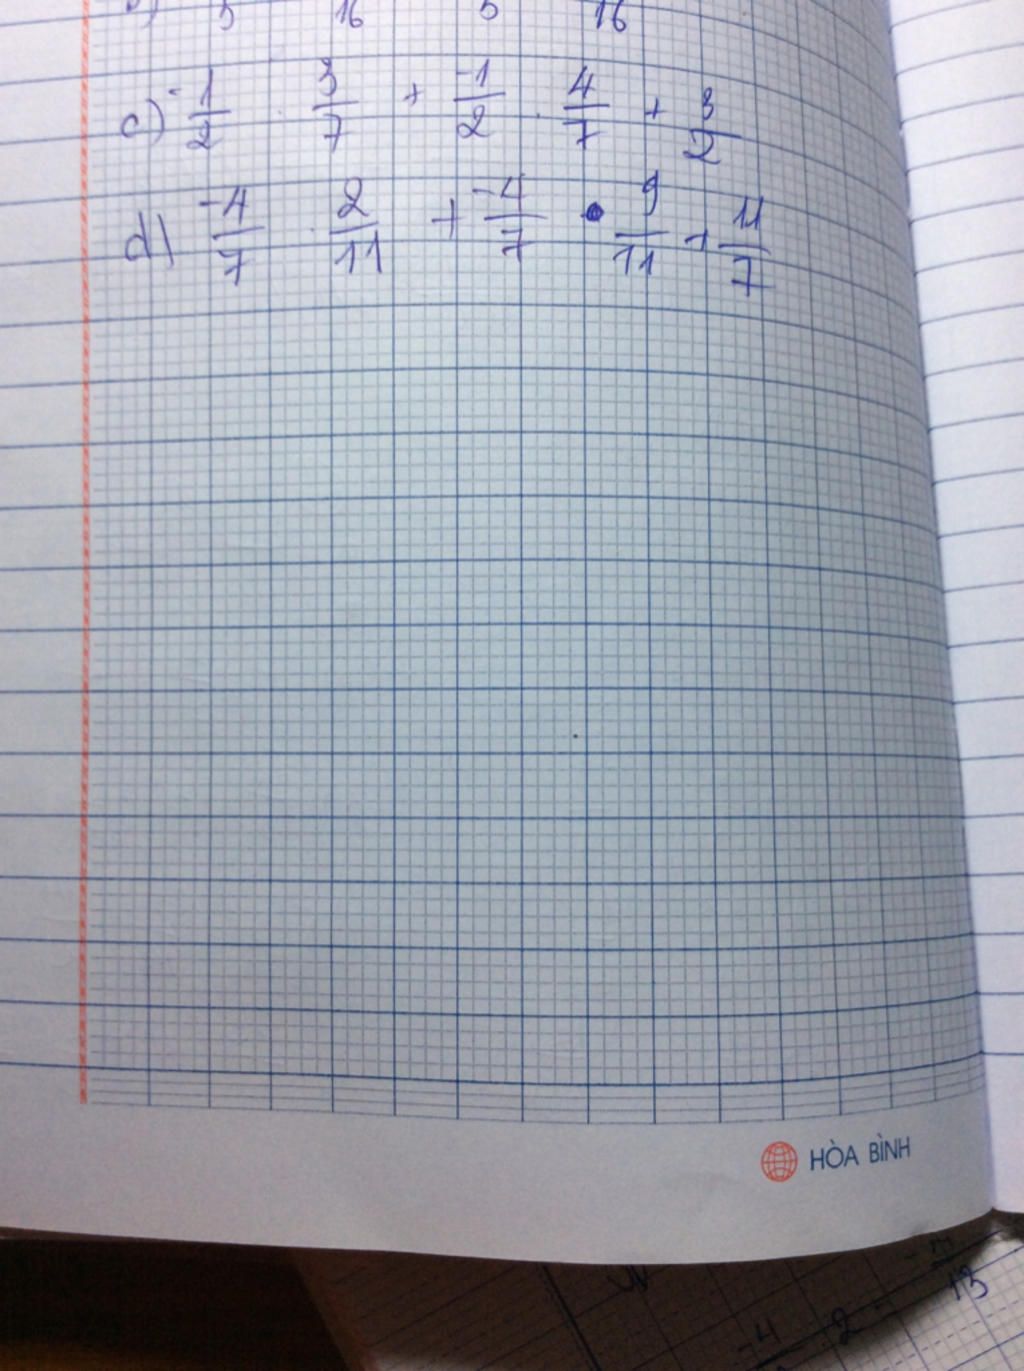 5 16 5 16
c) -1/2 . 3/7 + -1/2 . 4/7 + 3/2
d) -4/7 . 2/11 + -4/7 . 9/11 + 11/7
HÒA BÌNH
-4 2 13